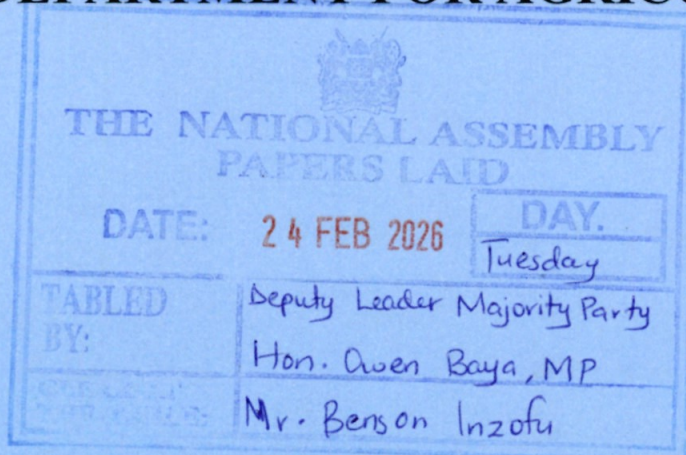 DEPARTMENT FOR AGRICU
THE NATIONAL ASSEMBLY
PAPERS LAID
DATE: 24 FEB 2026
DAY.
Tuesday
TABLED BY:
Deputy Leader Majority Party
Hon. Owen Baya, MP
Mr. Benson Inzofu